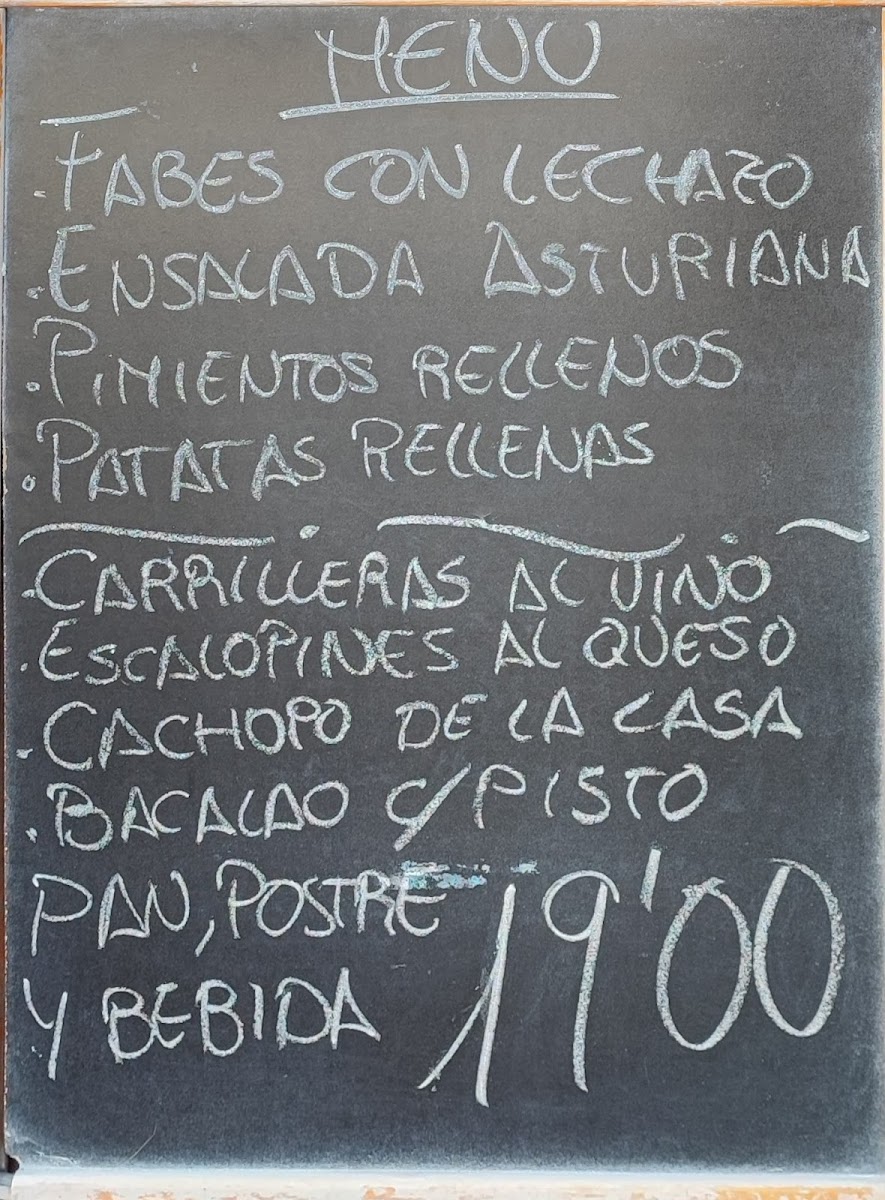 MENU
. FABES CON LECHAZO
. ENSALADA ASTURIANA
. PIMIENTOS RELLENOS
. PATATAS RELLENAS
. CARRILLERAS AL VINO
. ESCALOPINES AL QUESO
. CACHOPO DE LA CASA
. BACALAO C/PISTO
PAN, POSTRE
Y BEBIDA 19'00